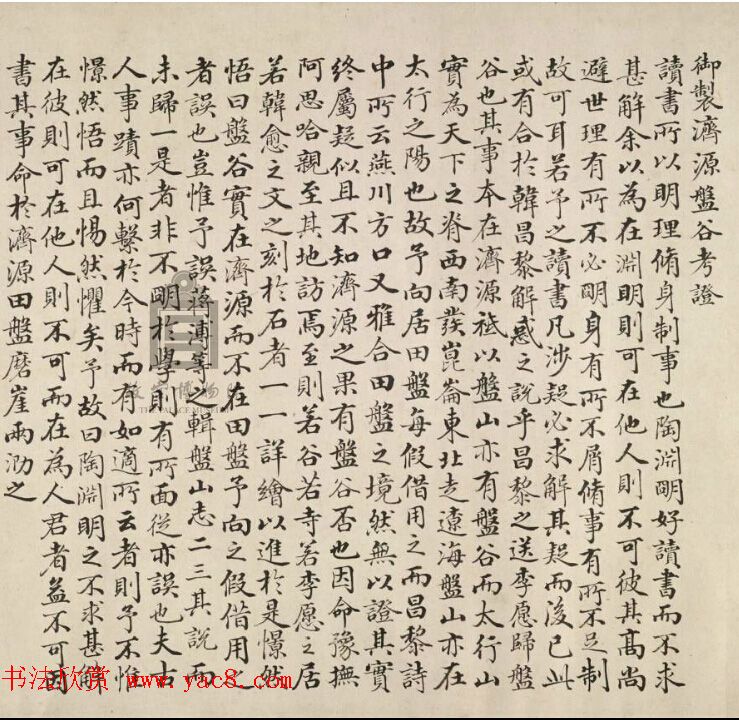 御製濟源盤谷考證
讀書所以明理脩身制事也陶淵明好讀書而不求
甚解余以為在淵明則可在他人則不可彼其髙尚
避世理有所不必明身有所不屑脩事有所不足制
故可耳若予之讀書凡涉疑必求解其疑而後已此
或有合於韓昌黎解惑之說乎昌黎之送李愿歸盤
谷也其事本在濟源祗以盤山亦有盤谷而太行山
實為天下之脊西南發崑崙東北走遼海盤山亦在
太行之陽也故予向居田盤每假借用之而昌黎詩
中所云燕川方口又雅合田盤之境然無以證其實
終屬疑似且不知濟源之果有盤谷否也因命豫撫
阿思哈親至其地訪焉至則若谷若寺若李愿之居
若韓愈之文之刻於石者一一詳繪以進於是憬然
悟曰盤谷實在濟源而不在田盤予向之假借用之
者誤也豈惟予誤蔣溥等之輯盤山志二三其說而
未歸一是者非不明於學則有所面從亦誤也夫古
人事蹟亦何繫於今時而有如適所云者則予不惟
憬然悟而且惕然懼矣予故曰陶淵明之不求甚解
在彼則可在他人則不可而在為人君者益不可因
書其事命於濟源田盤磨崖兩泐之
書法欣赏 www.yac8.com
THE PALACE MUSEUM